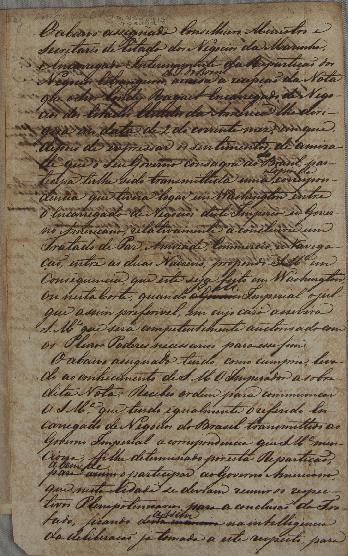 O abaixo assignado Conselheiro Ministro e
Secretario de Estado dos Negocios da Marinha,
e Encarregado Interinamente da Repartição dos
Negocios Estrangeiros, accusa a recepção da Nota
que o Snr. Condy Raguet Encarregado de Nego
cios dos Estados Unidos da America lhe diri
gio na data de 2 do corrente mez, em que
depois de expressar os sentimentos de amiza
de que o seu Governo consagra ao Brasil par
ticipa ter lhe sido transmittida uma correspon
dencia que tivera logar em Washington entre
o Encarregado de Negocios deste Imperio e o Gover
no Americano, relativamente a concluir-se um
Tratado de Paz, Amizade, Commercio, e Navega
ção, entre as duas Nações, propondo S. Mce. em
consequencia que este seja feito em Washington
ou nesta Corte, quando Imperial o jul
gue assim preferivel, em cujo caso assevera
S. Mce. que será competentemente authorisado com
os Plenos Poderes necessarios para esse fim.
O abaixo assignado tendo, como cumpria, leva
do ao conhecimento de S. M. O Imperador a sobre
dita Nota; Recebeo ordem para communicar
a S. Mce. que tendo igualmente o referido En
carregado de Negocios do Brasil transmittido ao
Governo Imperial a correspondencia que S. Mce. men
ciona, foi-lhe determinado por esta Repartição,
a fim de participar ao Governo Americano,
que nesta Cidade se deviam reunir os respec
tivos Plenipotenciarios para a conclusão do Tra
tado, ficando na intelligencia
da deliberação já tomada a este respeito, para